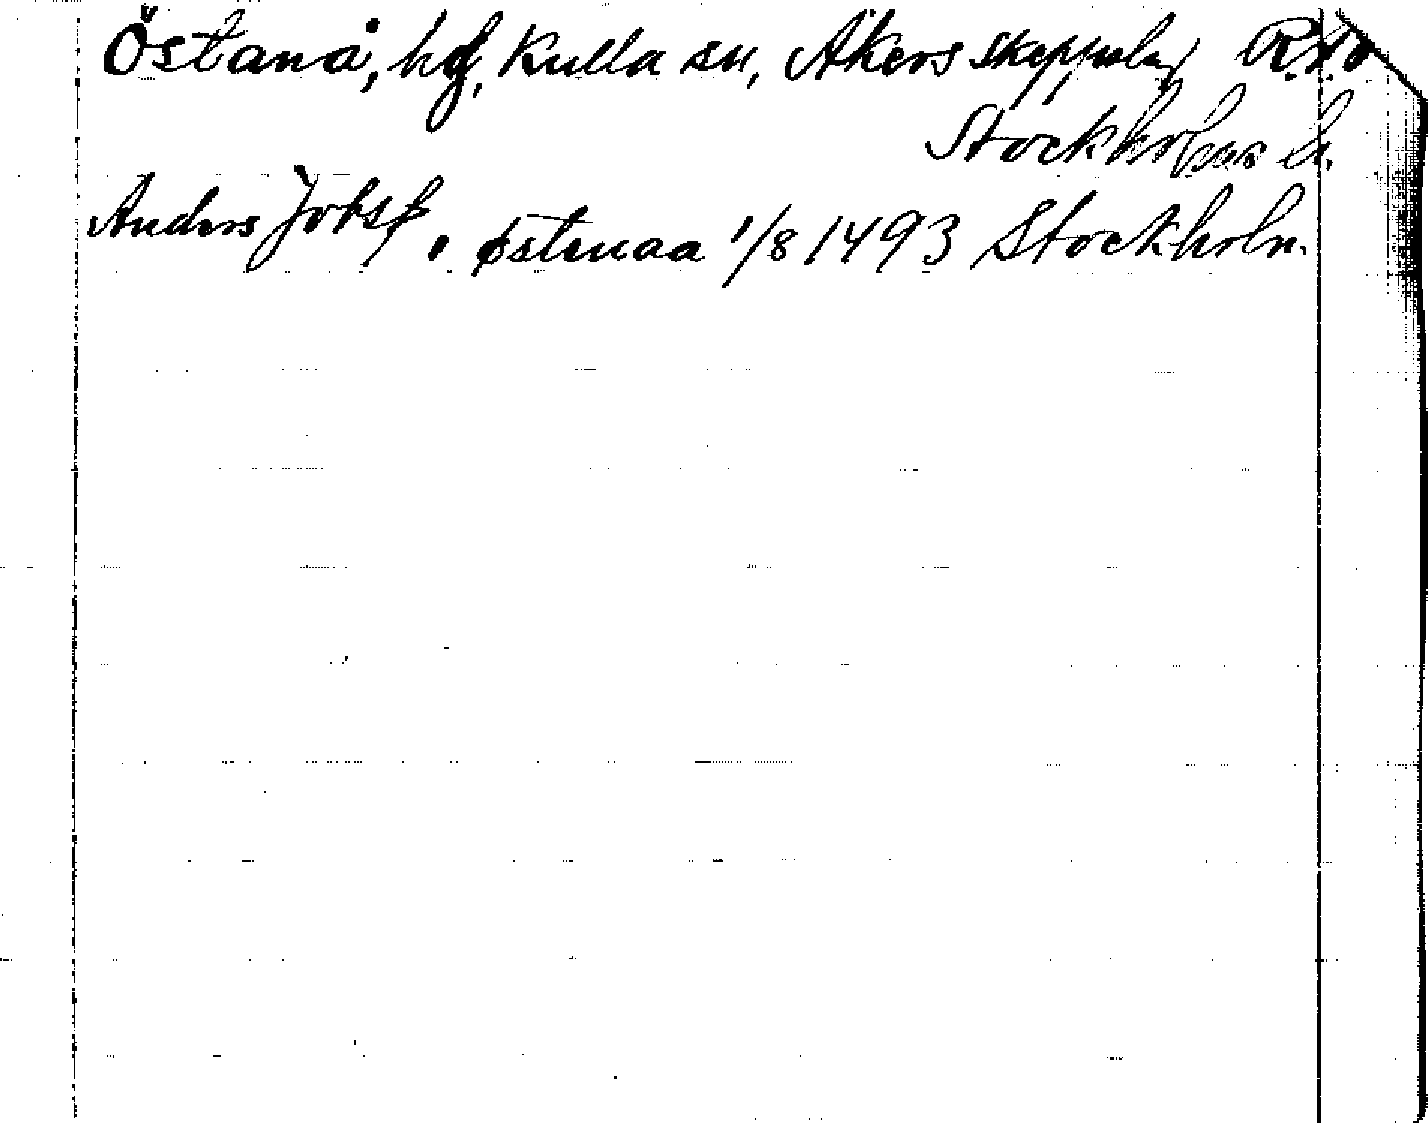 Östanå, hg, Kulla sn, Åkers skeppslag R.
Stockholms l.
Anders Jobsß, østenaa 1/8 1493 Stockholm.